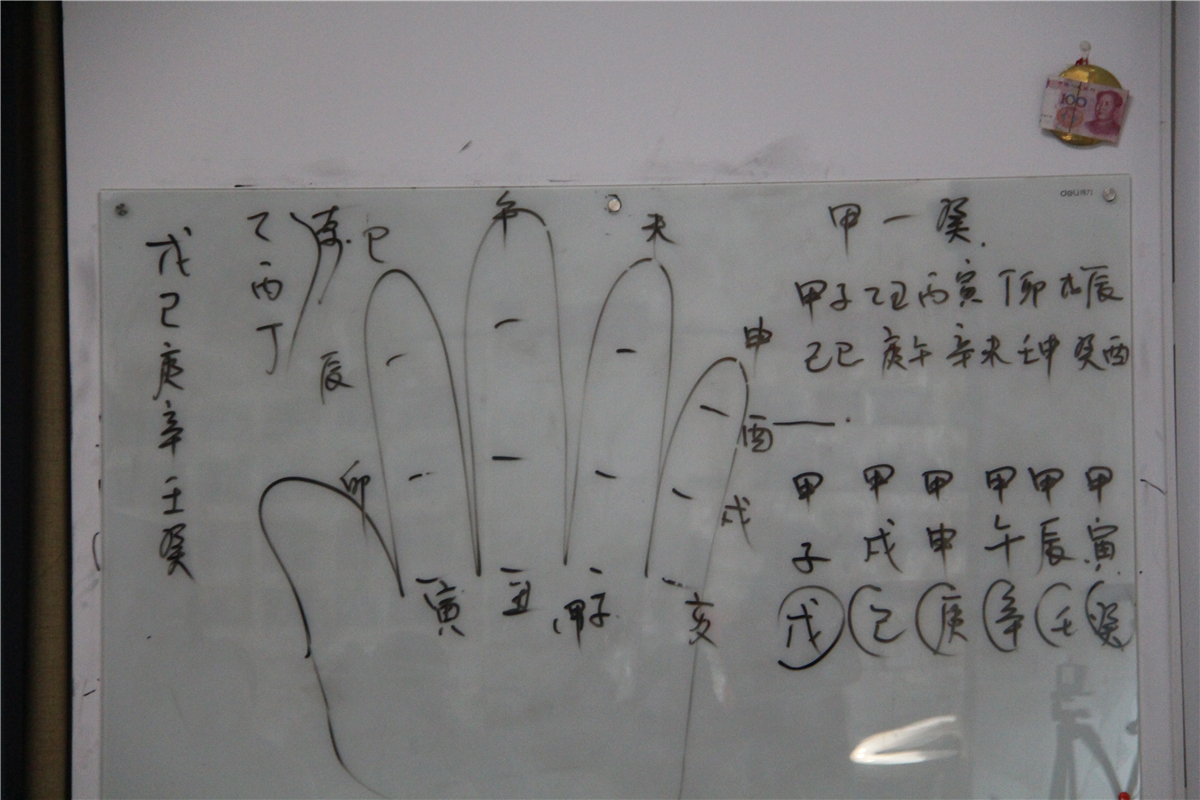 戊
己
庚
辛
壬
癸
乙
丙
丁
巳
午
未
申
酉
戌
亥
甲子
丑
寅
卯
辰
甲一癸.
甲子乙丑丙寅丁卯戊辰
己巳庚午辛未壬申癸酉
甲 甲 甲 甲 甲 甲
子 戌 申 午 辰 寅
戊 己 庚 辛 壬 癸
100